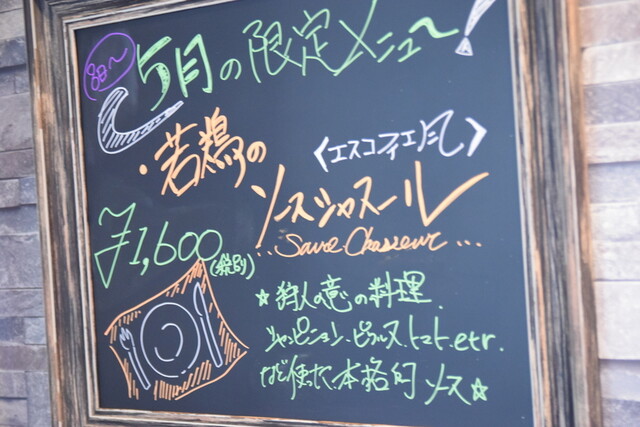 8日〜
5月の限定メニュー!
・若鶏の
〈エスコフィエ風〉
ソースシャスール
..Sauce Chasseur...
¥1,600(税別)
☆狩人の意の料理.
シャンピニョン、ピクルス、トマト.etr.
など使た、本格的ソース☆